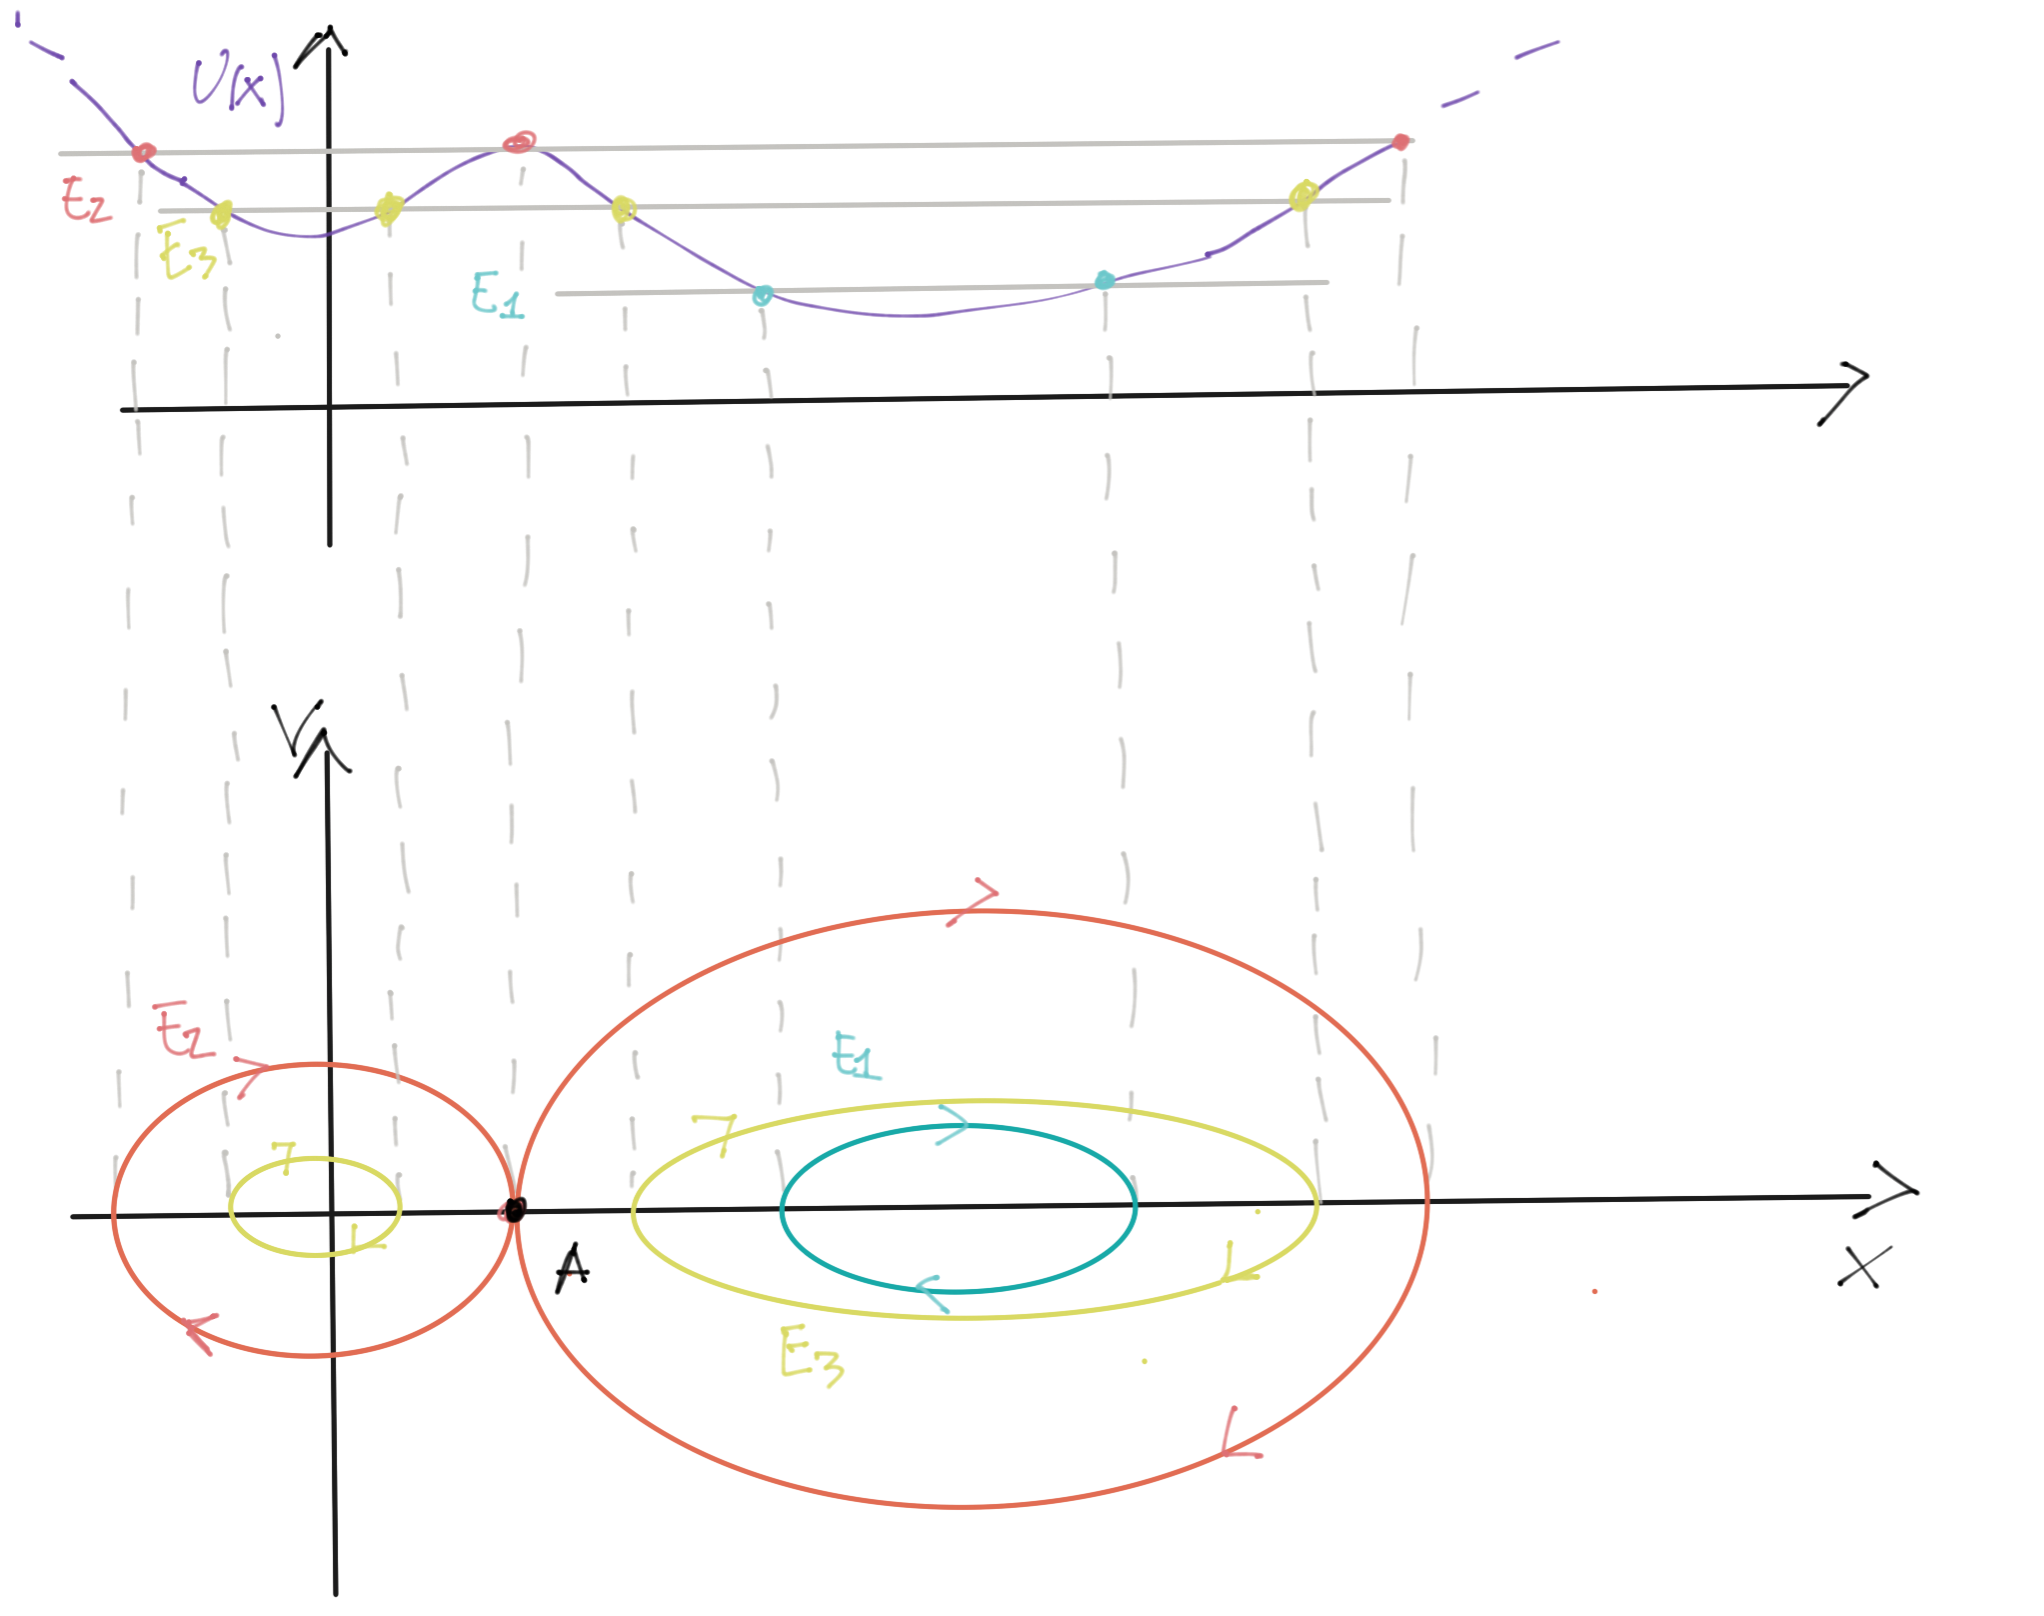 U(x)
E2
E3
E1
V
E2
E1
A
E3
X